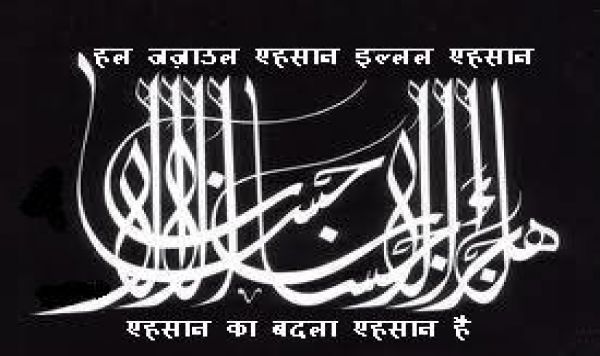 हल जज़ाउल एहसान इल्लल एहसान
هل جزاء الاحسان الا الاحسان
एहसान का बदला एहसान है